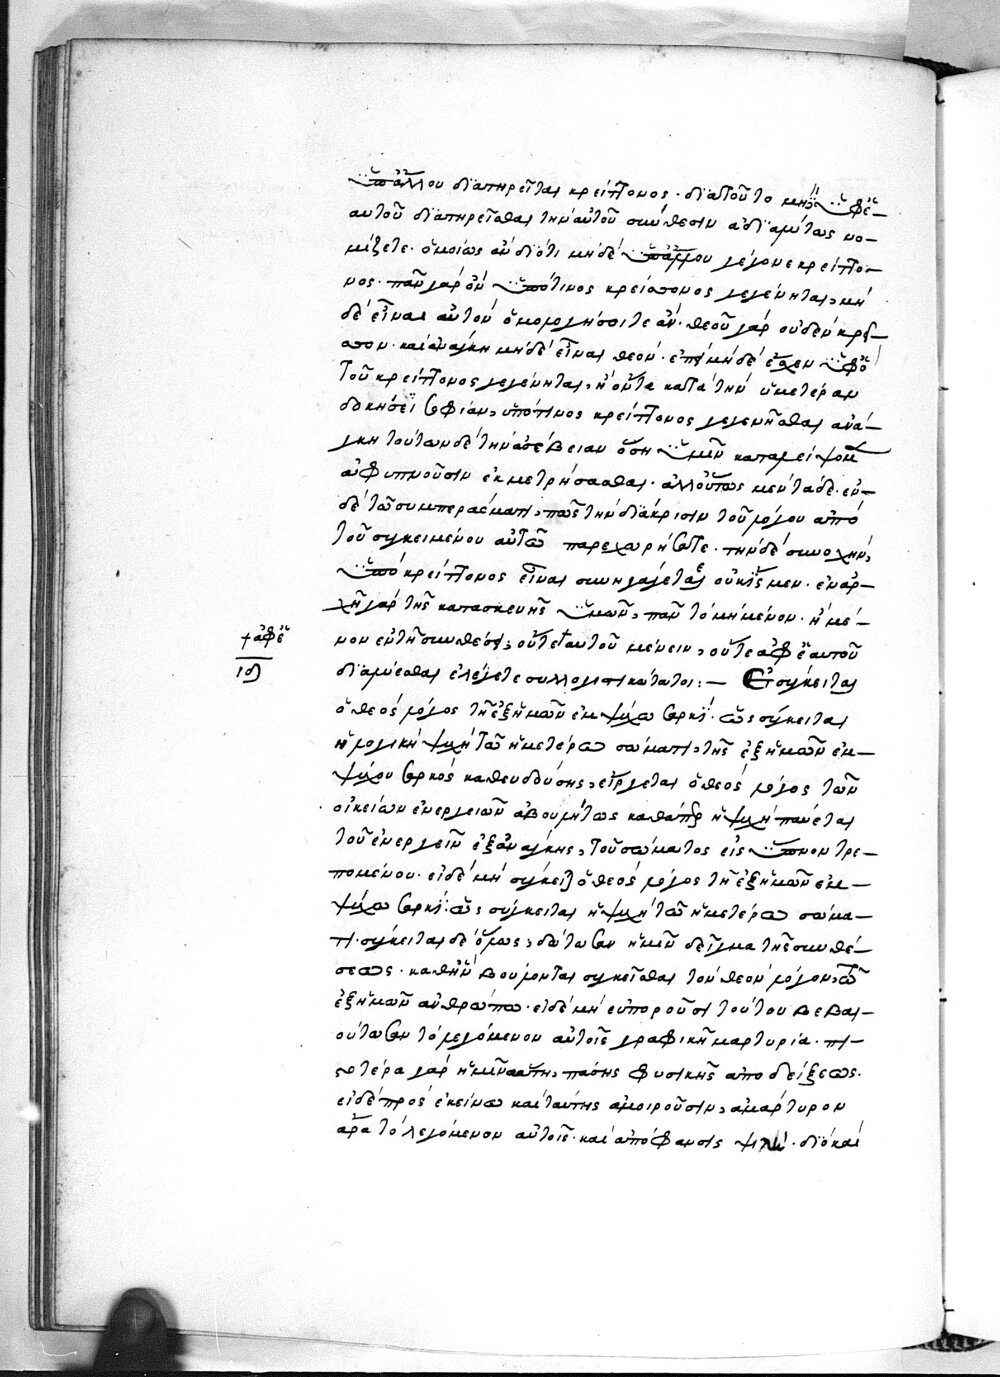 ὑπ' ἄλλου διατηρεῖται κρείττονος. διατοῦτο μηδ' ὑφ' ἑ-
αυτοῦ διατηρεῖσθαι τὴν αὐτοῦ σύνθεσιν ἀδιαλύτως νο-
μίζετε. ὁμοίως ἀνθότι μηδὲ ὑπ' ἄλλου γέγονε κρείττο-
νος. πᾶν γὰρ ὃν ὑπό τινος κρείσσονος γεγένηται, μη
δὲ εἶναι αὐτὸν ὁμολογήσοιτε ἄν. θεοῦ γὰρ οὐδὲν κρεῖ-
σσον. καὶ ἀνάγκη μηδὲ εἶναι θεόν. ἐπεὶ μηδὲ ἔσχεν ὑφ' οὗ
τοῦ κρείττονος γεγένηται, ἢ ὄντα κατὰ τὴν ὑμετέραν
δοκησισοφίαν, ὑπό τινος κρείττονος γεγενῆσθαι ἀνά-
γκη τούτων δὲ τὴν ἀσέβειαν ὅση ὑμῖν καταλείψομεν
ἀφυπνοῦσιν ἐκμετρήσασθαι. ἀλλ' οὕτως μὲν τάδε. ἐν-
δὲ τῷ συμπεράσματι, πῶς τὴν διάκρισιν τοῦ λόγου ἀπὸ
τοῦ συγκειμένου αὐτῷ παρεχωρήσατε. τὴν δὲ συνοχὴν,
ὑπὸ κρείττονος εἶναι συνηγάγετε οὐκ ἴσμεν. ἐναρ-
χῇ γὰρ τῆς κατασκευῆς ὑμῶν, πᾶν τὸ μὴ μένον. ἢ μέ-
νον ἐν τῇ συνθέσει, οὔτε ἐφ' αὑτοῦ μένειν, οὔτε ἀφ' ἑαυτοῦ
διαλύεσθαι ἐλέγετε συλλογιστικώτατοι :— Εἰ σύγκειται
ὁ θεὸς λόγος τῇ ἐξ ἡμῶν ἐμψύχῳ σαρκί. ὡς σύγκειται
ἡ λογικὴ ψυχὴ τῷ ἡμετέρῳ σώματι, τῆς ἐξ ἡμῶν ἐμ-
ψύχου σαρκὸς καθευδούσης, εἴργεται ὁ θεὸς λόγος τῶν
οἰκείων ἐνεργειῶν ἀβουλήτως καθάπερ ἡ ψυχὴ παύεται
τοῦ ἐνεργεῖν ἐξ ἀνάγκης, τοῦ σώματος εἰς ὕπνον τρε-
πομένου. εἰ δὲ μὴ σύγκειται ὁ θεὸς λόγος τῇ ἐξ ἡμῶν ἐμ-
ψύχῳ σαρκί. ὡς σύγκειται ἡ ψυχὴ τῷ ἡμετέρῳ σώμα-
τι. σύγκειται δὲ ὅμως, δότωσαν ἡμῖν δεῖγμα τῆς συνθέ-
σεως. καθ' ἣν βούλονται συγκεῖσθαι τὸν θεὸν λόγον, τῷ
ἐξ ἡμῶν ἀνθρώπῳ. εἰ δὲ μὴ εὐποροῦσι τούτου βεβαι-
ούτωσαν τὸ λεγόμενον αὐτοῖς γραφικῇ μαρτυρίᾳ. πι-
στοτέρα γὰρ ἡμῖν αὕτη, πάσης φυσικῆς ἀποδείξεως.
εἰ δὲ πρὸς ἐκείνῳ καὶ ταύτης ἀμοιροῦσιν, ἀμάρτυρον
ἄρα τὸ λεγόμενον αὐτοῖς. καὶ ἀπόφανσις ψιλή. διὸ καὶ